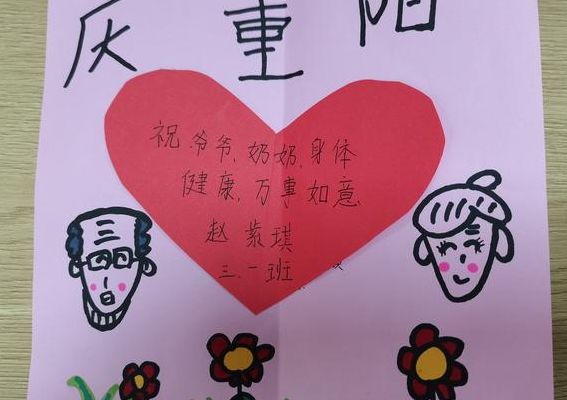 庆重阳
祝爷爷、奶奶,身体
健康,万事如意
赵紫琪
三、一班